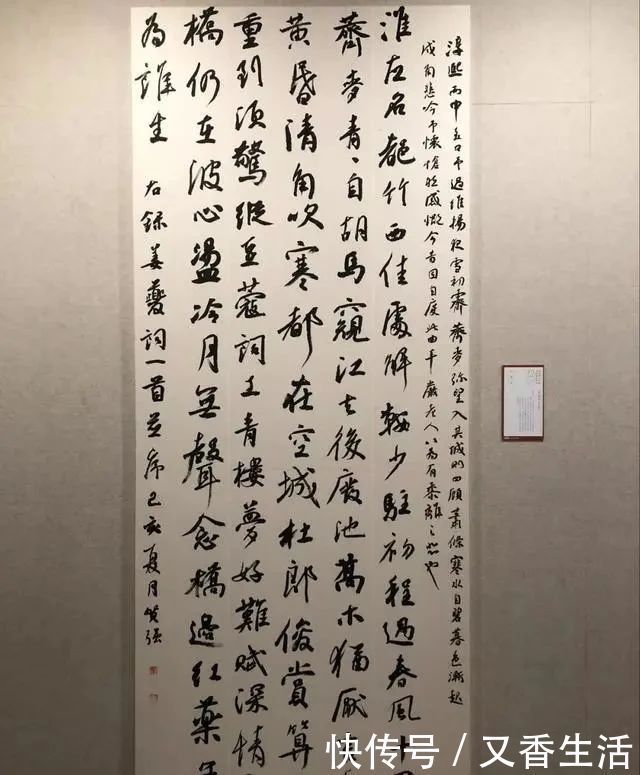 淳熙丙申至日予過維揚夜雪初霽薺麥弥望入其城則四顧蕭條寒水自碧暮色漸起
戍角悲吟予懷愴然感慨今昔因自度此曲千巖老人以為有黍離之悲也
淮左名都竹西佳處解鞍少駐初程過春風十
薺麥青、自胡馬窺江去後廢池喬木猶厭
黄昏清角吹寒都在空城杜郎俊賞算
重到須驚縱豆蔻詞工青樓夢好難賦深情
橋仍在波心盪冷月無聲念橋邊紅藥年
為誰生 右録姜夔詞一首並序己亥夏月
快传号 / 又香生活